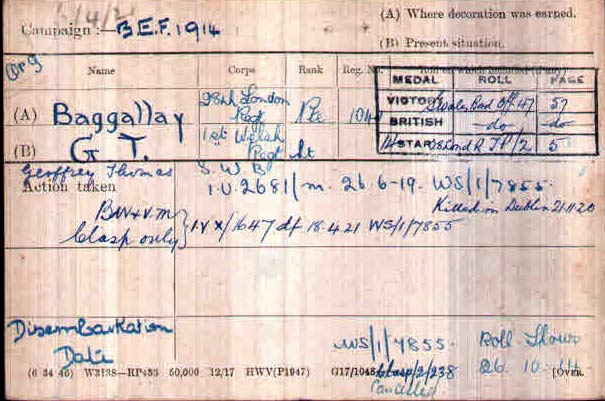 (A) Where decoration was earned.
Campaign :— B.E.F. 1914
(B) Present situation.
Name Corps Rank Reg. No.
MEDAL ROLL PAGE
(A) Baggallay 28th London Regt Pte 104
VICTORY Off 47 57
(B) G. T. 1st Welsh Regt Lt
BRITISH do do
14 STAR 5
Geoffrey Thomas S.W.B.
Action taken I.V.2681/m. 26-6-19. WS/1/7855.
Killed in Dublin 21.11.20
BW & V.M
Clasp only } I.V.X/1647 df 18.4.21 WS/1/7855
Disembarkation WS/1/7855. Roll Shows
Date Clasp/2/238 26. 10. 14
(6 34 46) W3138—RP433 50,000 12/17 HWV(P1947) G17/1048 [OVER.
Cancelled